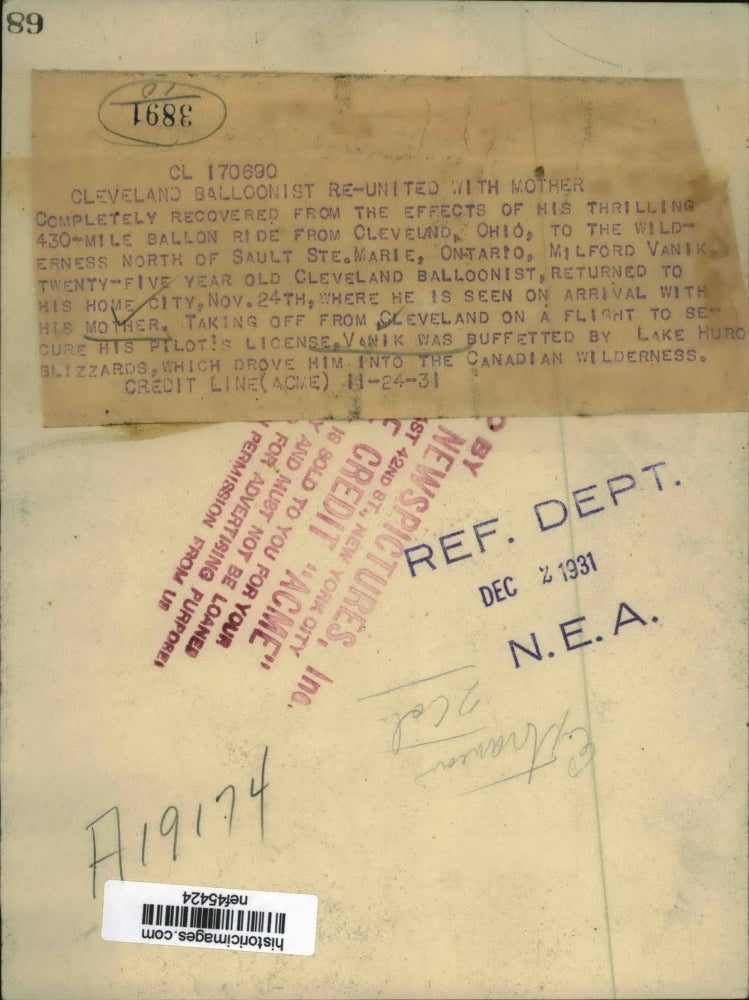 89
10
3891
CL 170690
CLEVELAND BALLOONIST RE-UNITED WITH MOTHER
COMPLETELY RECOVERED FROM THE EFFECTS OF HIS THRILLING
430-MILE BALLON RIDE FROM CLEVELND, OHIO, TO THE WILD-
ERNESS NORTH OF SAULT STE.MARIE, ONTARIO, MILFORD VANIK,
TWENTY-FIVE YEAR OLD CLEVELAND BALLOONIST, RETURNED TO
HIS HOME CITY, NOV. 24TH, WHERE HE IS SEEN ON ARRIVAL WITH
HIS MOTHER. TAKING OFF FROM CLEVELAND ON A FLIGHT TO SE-
CURE HIS PILOT'S LICENSE, VANIK WAS BUFFETTED BY LAKE HURO
BLIZZARDS, WHICH DROVE HIM INTO THE CANADIAN WILDERNESS.
CREDIT LINE(ACME) 11-24-31
D BY
NEWSPICTURES, Inc.
ST 42ND ST., NEW YORK CITY
CREDIT "ACME"
IS SOLD TO YOU FOR YOUR
Y AND MUST NOT BE LOANED
FOR ADVERTISING PURPOSES
N PERMISSION FROM US
REF. DEPT.
DEC 2 1931
N.E.A.
2 Col.
A19174
historicimages.com
nef45424